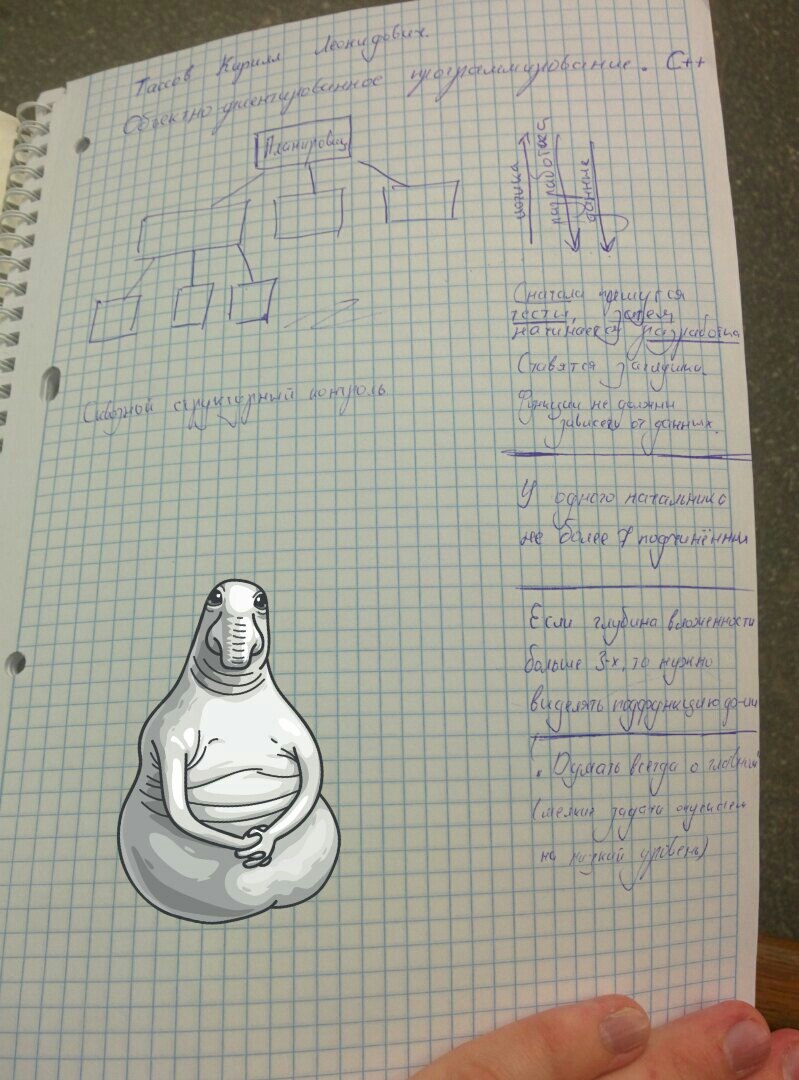 Тассов Кирилл Леонидович.
Объектно-ориентированное программирование. С++
Планировщ
логика
разработка
данные
Сначала пишутся
тесты, затем
начинается разработка
Ставятся заглушки.
Функции не должны
зависеть от данных.
Сквозной структурный контроль
У одного начальника
не более 7 подчинённы
Если глубина вложенности
больше 3-х, то нужно
выделять подфункцию ф-ии
. Думать всегда о главн
(мелкие задачи опускаем
на низкий уровень)